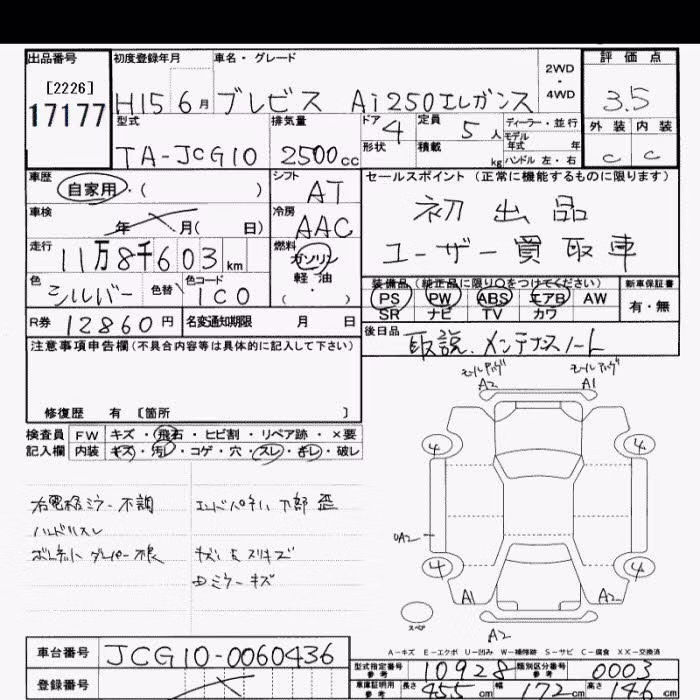 出品番号 初度登録年月 車名・グレード 2WD・4WD 評価点
[2226]
17177 H15 6月 ブレビス Ai250エレガンス 3.5
型式 排気量 ドア 4 定員 5人 ディーラー・並行 外装 内装
TA-JCG10 2500cc 形状 積載 kg モデル年式 年 ハンドル 左・右 C C
車歴 シフト セールスポイント (正常に機能するものに限ります)
自家用・( ) AT
車検 年 月( 日) 冷房 AAC 初出品
走行 11万8千603km 燃料 ガソリン 軽油 (・) ユーザー買取車
色 シルバー 色替 色コード 1C0
装備品(純正品に限り○をつけてください) 新車保証書
PS PW ABS エアB AW 有・無
SR ナビ TV カワ
R券 12860円 名変通知期限 月 日
後日品 取説、メンテナスノート
注意事項申告欄(不具合内容等は具体的に記入して下さい)
モールアリゲ A2 モールアリゲ A1
修復歴 有 [箇所 ]
検査員 FW キズ・飛石・ヒビ割・リペア跡・×要
記入欄 内装 キズ・汚れ・コゲ・穴・スレ・キレ・破レ
4 4
右電格ミラー不調 エンドパネル下部歪
ハンドルスレ
ボンネットダンパー不良 キズ・スリキズ
ミラーキズ
A2
4 4
A1 A2
スペア
A2
A-キズ E-エクボ U-凹み W-補修跡 S-サビ C-腐食 XX-交換済
車台番号 JCG10-0060436
型式指定番号 参考 10928 類別区分番号 参考 0003
登録番号
車庫証明用 参考 長さ 455cm 幅 172cm 高さ 146cm